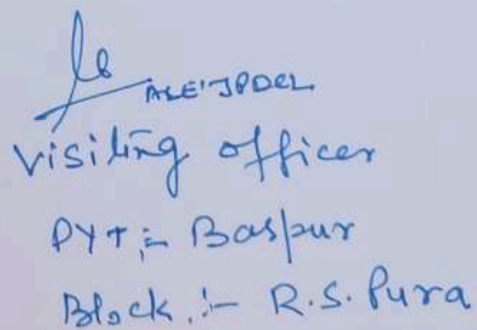 AEE'JPDCL
Visiting officer
PYT:- Baspur
Block:- R.S. Pura